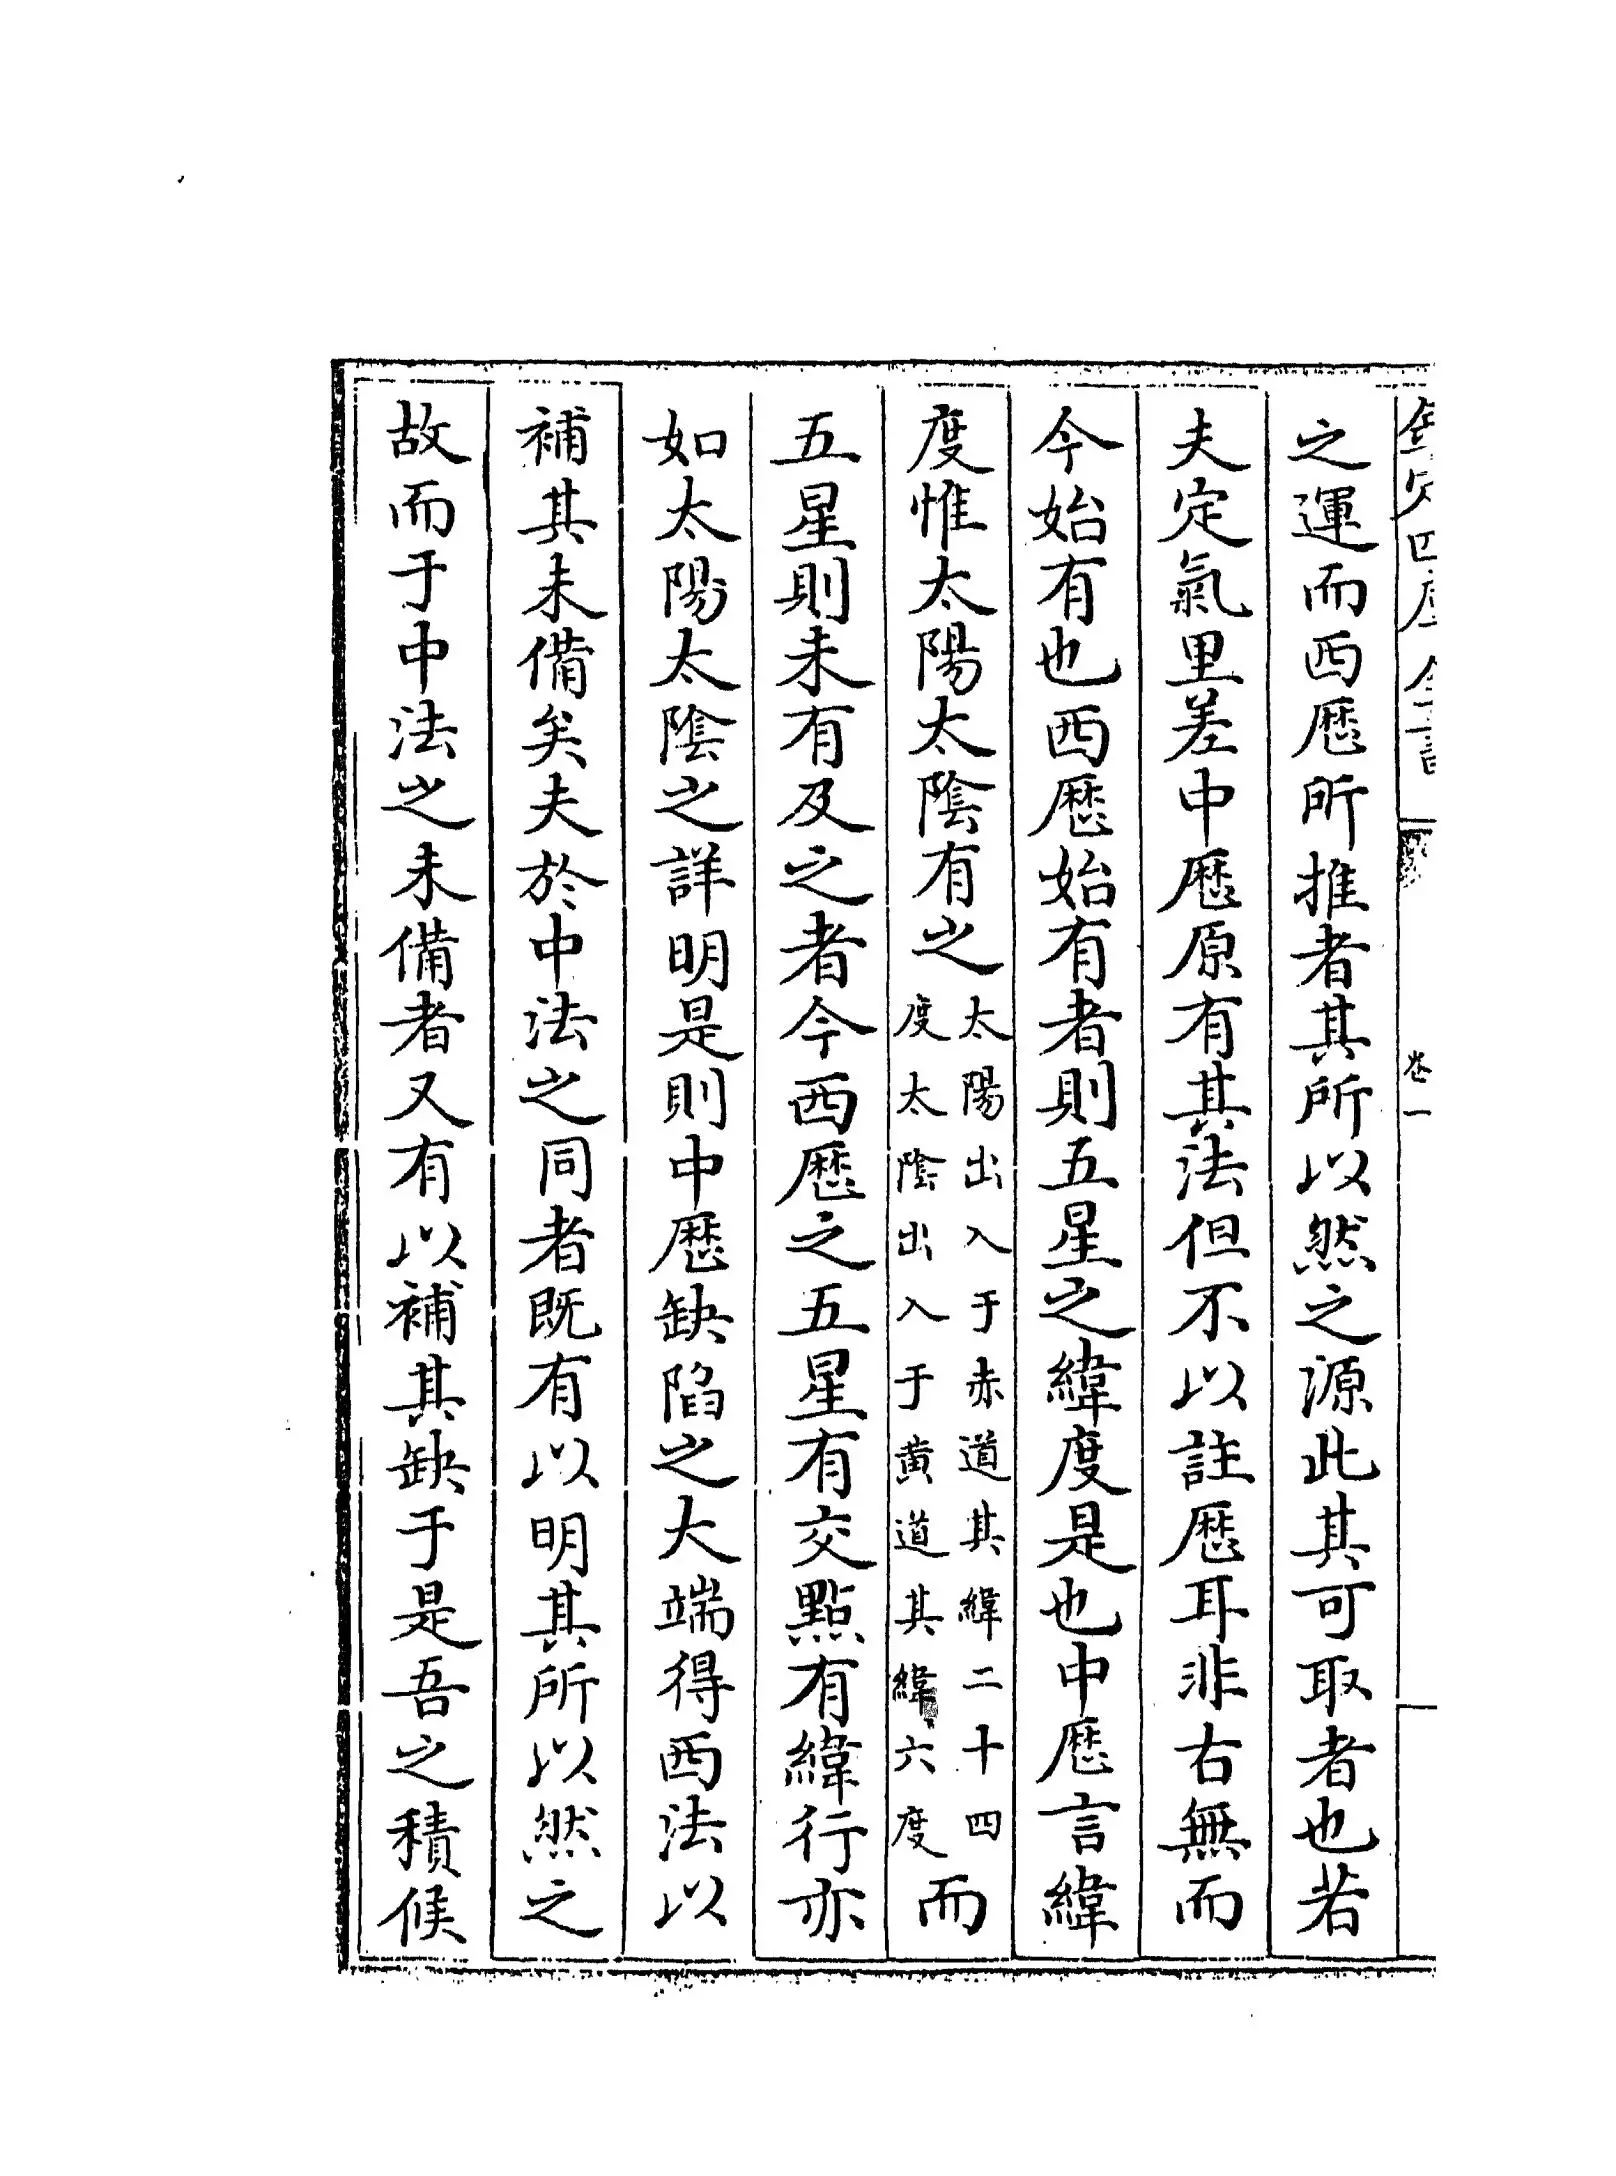 欽定四庫全書
卷一
之運而西厯所推者其所以然之源此其可取者也若
夫定氣里差中厯原有其法但不以註厯耳非右無而
今始有也西厯始有者則五星之緯度是也中厯言緯
度惟太陽太陰有之太陽出入于赤道其緯二十四度太陰出入于黄道其緯六度而
五星則未有及之者今西厯之五星有交點有緯行亦
如太陽太陰之詳明是則中厯缺陷之大端得西法以
補其未備矣夫於中法之同者既有以明其所以然之
故而于中法之未備者又有以補其缺于是吾之積候